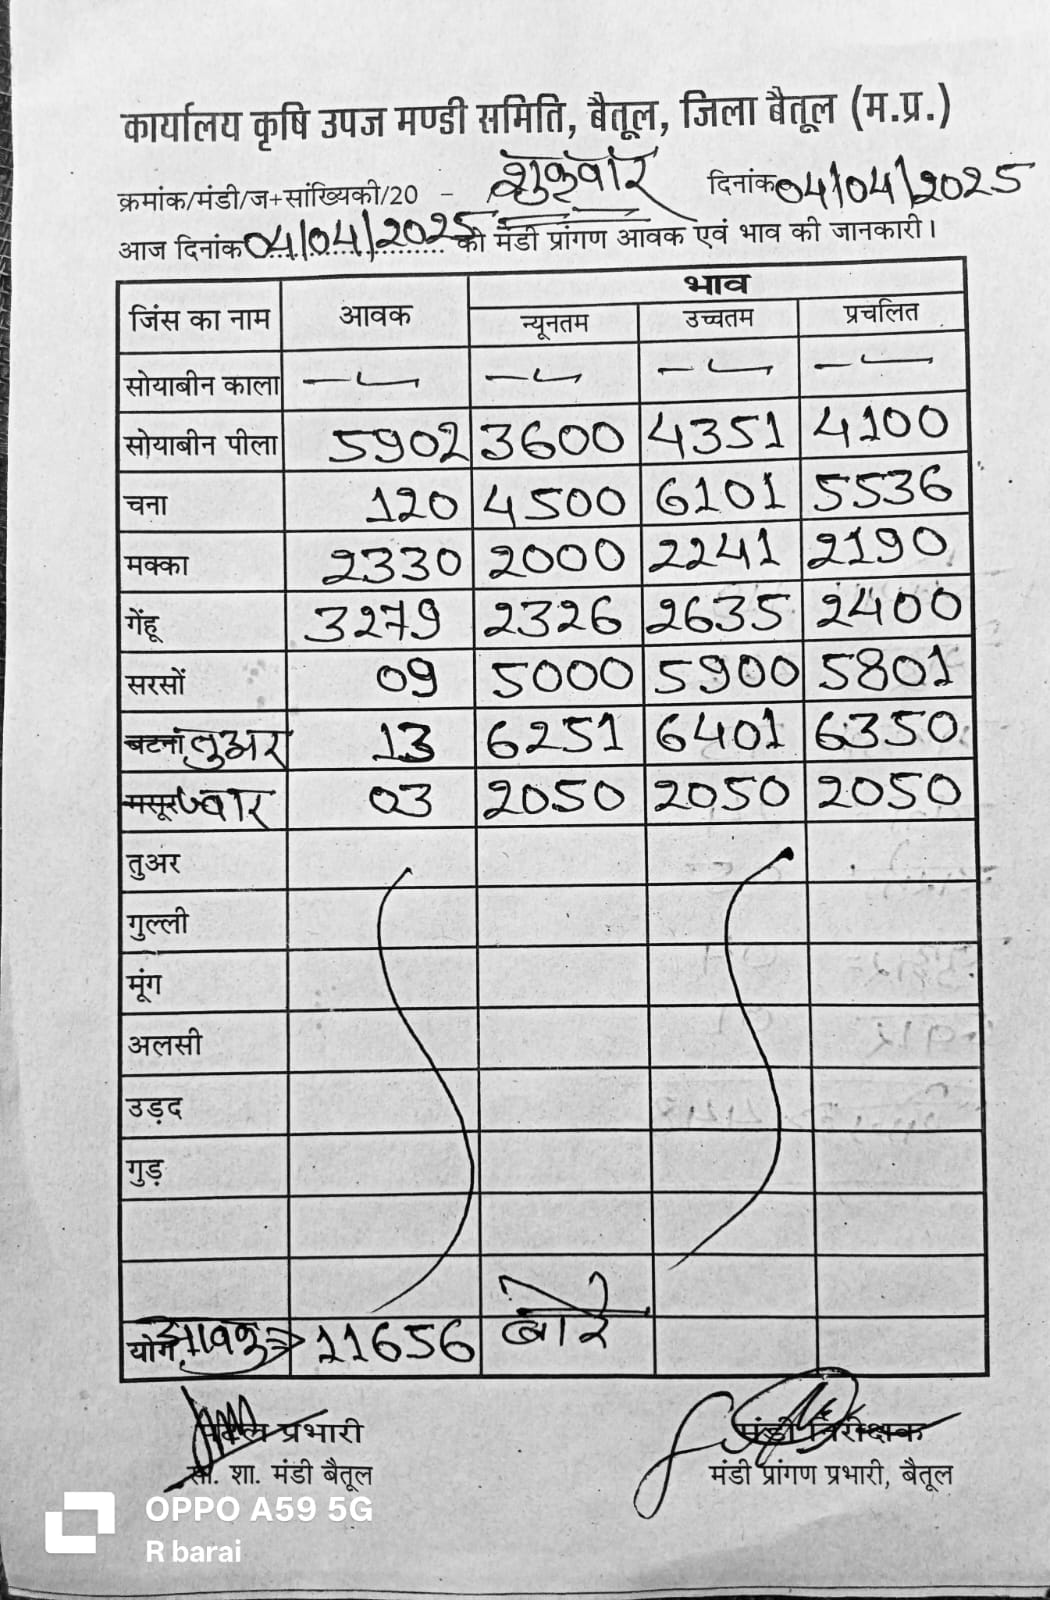 कार्यालय कृषि उपज मण्डी समिति, बैतूल, जिला बैतूल (म.प्र.)
क्रमांक/मंडी/ज+सांख्यिकी/20 - शुक्रवार दिनांक 04/04/2025
आज दिनांक 04/04/2025 को मंडी प्रांगण आवक एवं भाव की जानकारी।
जिंस का नाम आवक भाव
न्यूनतम उच्चतम प्रचलित
सोयाबीन काला — — — —
सोयाबीन पीला 5902 3600 4351 4100
चना 120 4500 6101 5536
मक्का 2330 2000 2241 2190
गेंहू 3279 2326 2635 2400
सरसों 09 5000 5900 5801
बटना तुअर 13 6251 6401 6350
मसूर ज्वार 03 2050 2050 2050
तुअर
गुल्ली
मूंग
अलसी
उड़द
गुड़
योग आवक 11656 बोरे
प्रभारी
सां. शा. मंडी बैतूल
मंडी निरीक्षक
मंडी प्रांगण प्रभारी, बैतूल
OPPO A59 5G
R barai